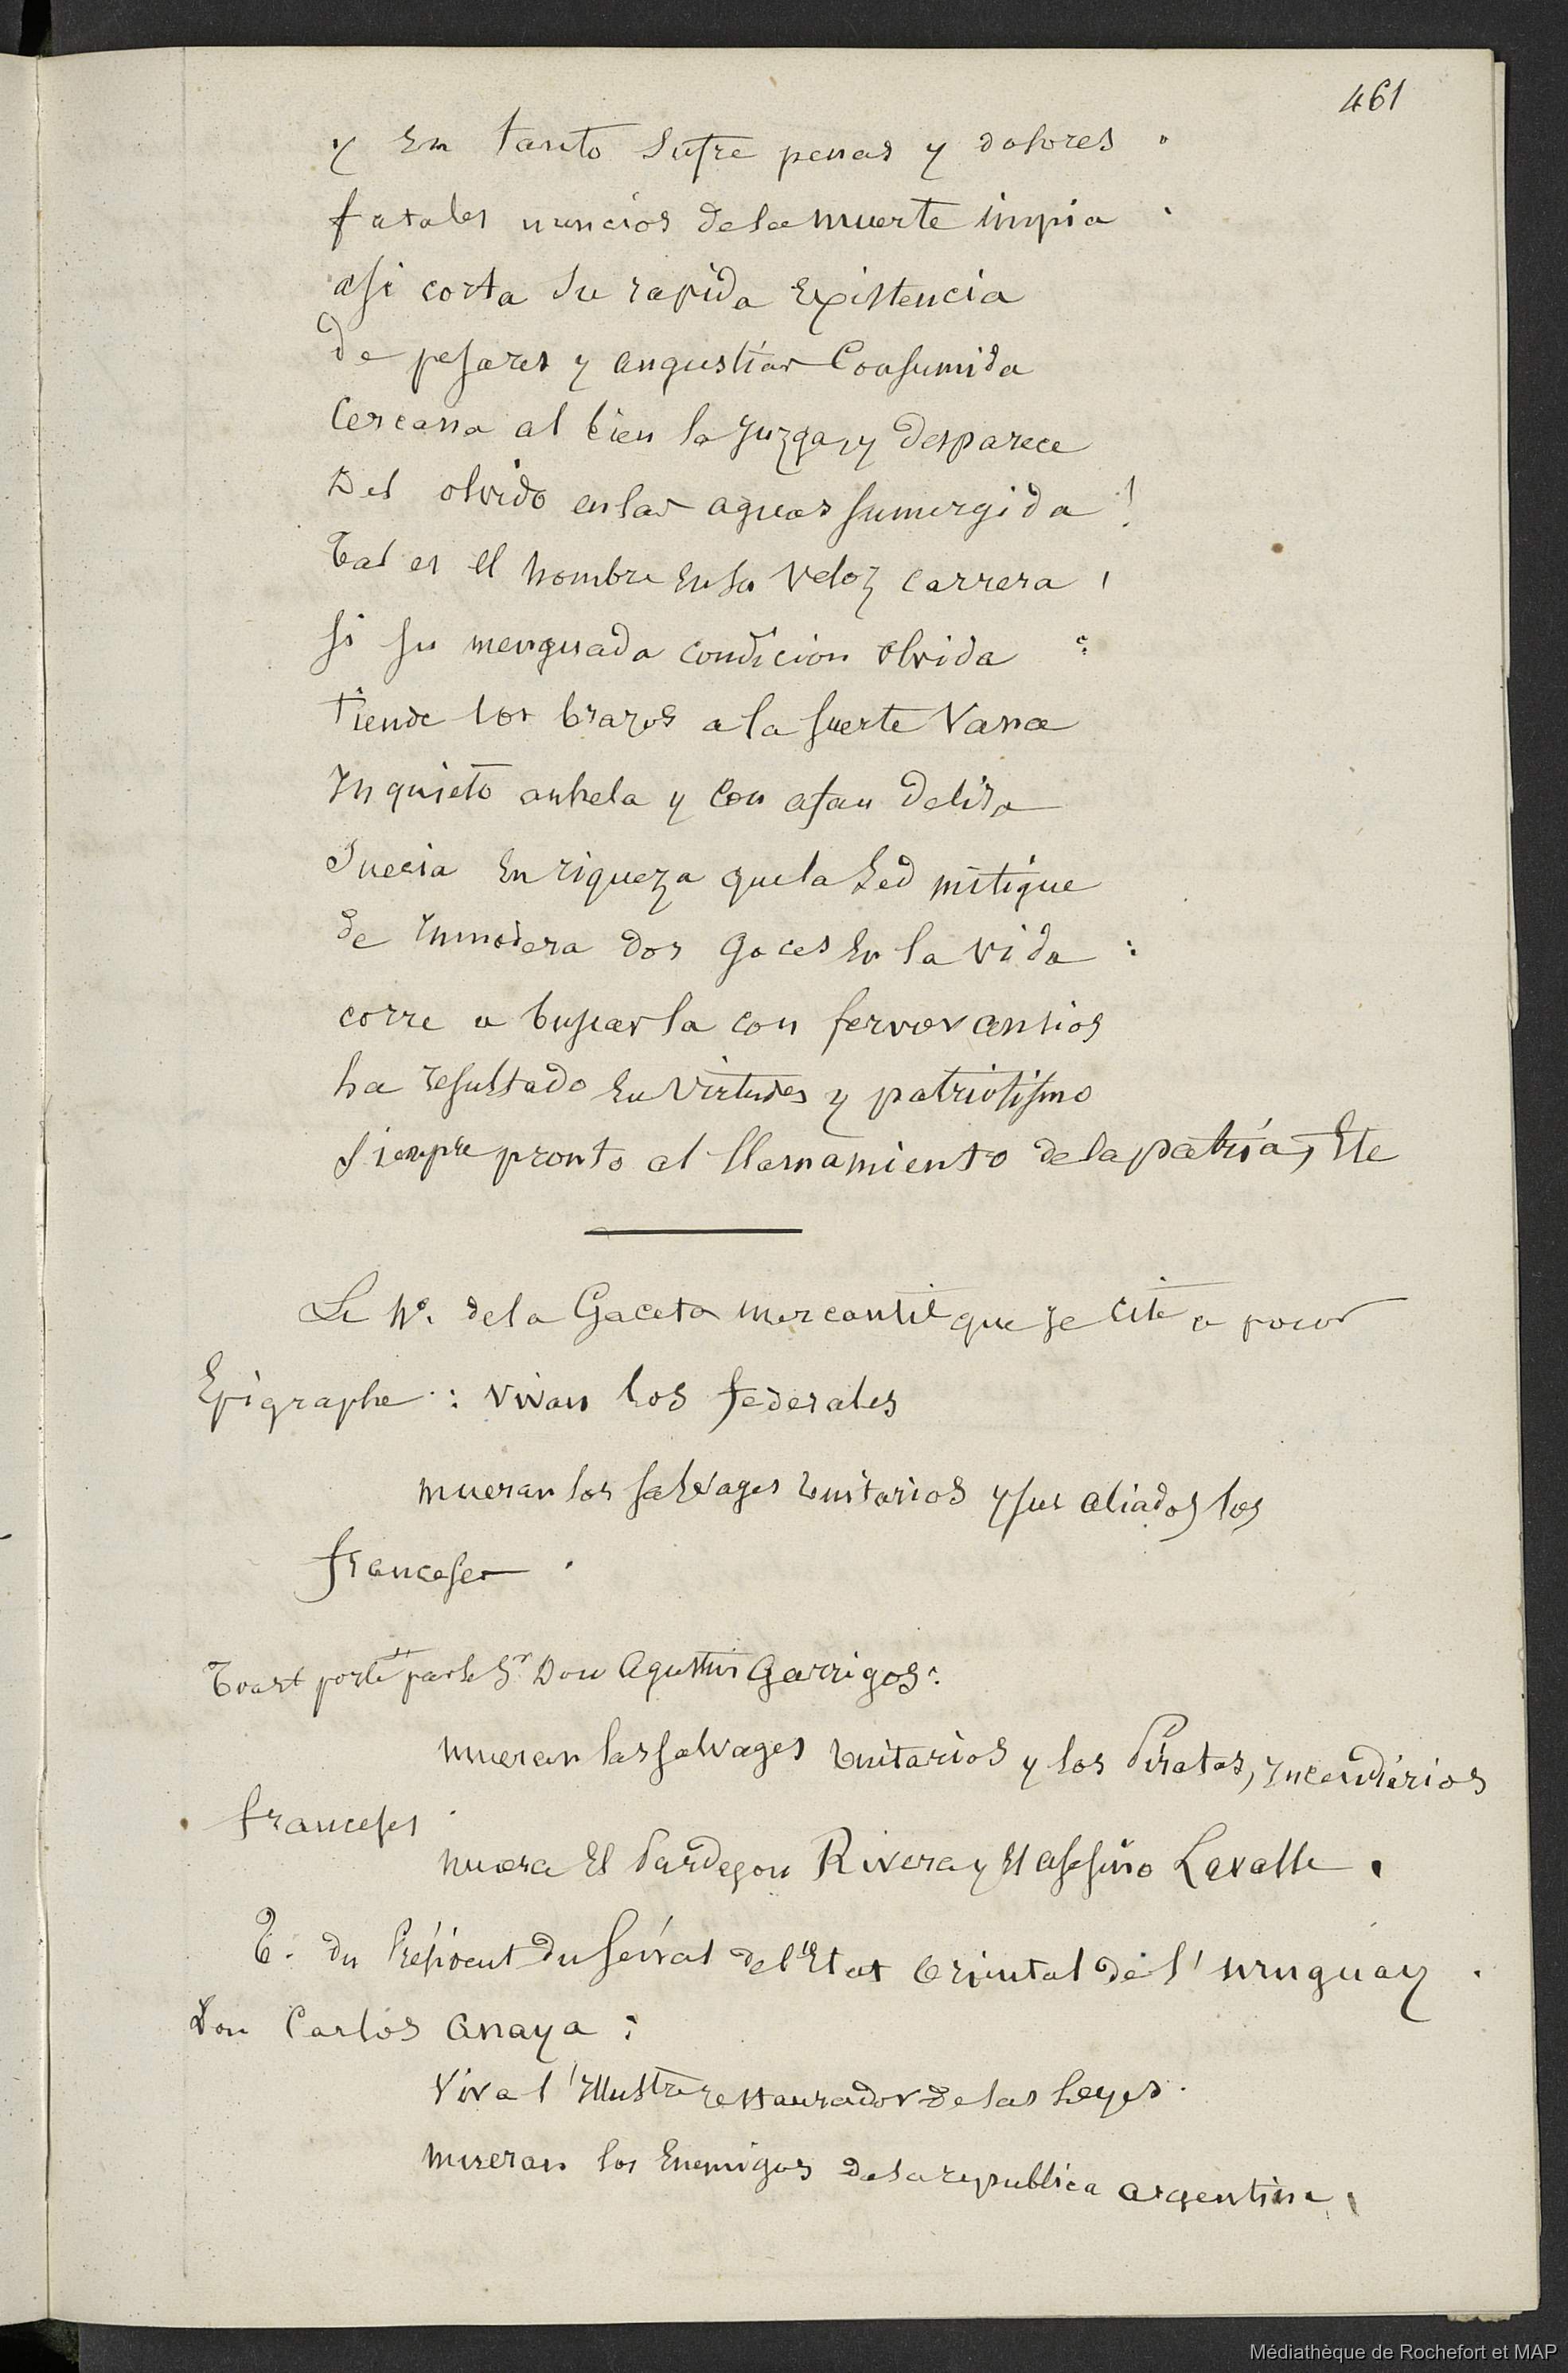 461
y En tanto sufre penas y dolores .
fatales nuncios de la muerte impia .
asi corta su rapida Existencia
De pesares y angustias Consumida
Cercana al bien la juzga, y desparece
Del olvido en las aguas sumergida !
Tal es el hombre En su Veloz carrera ,
si su menguada condicion olvida :
tiende los brazos a la suerte Vana
Inquieto anhela y Con afan delira
Suecia En riqueza que la Sed mitigue
de Inmodera dos goces En la vida :
corre a buscarla con fervor ansios
ha resultado En Virtudes y patriotismo
siempre pronto al llamamiento de la patria, Ete
Le No. de la Gaceta mercantil que je cite a pour
Epigraphe : vivan los federales
mueran los salvages Unitarios y sus aliados los
franceses .
Toast porté par le Sr. Don Agustin Garrigos :
mueran los salvages Unitarios y los Piratas, Incendiarios
franceses .
muera El Pardejon Rivera y El assesino Lavalle .
T. du Président du Sénat de l'Etat Oriental de l'uruguay .
Don Carlos Anaya :
Viva l'Illustre restaurador de las Leyes .
mueran los Enemigos de la republica argentina .
Médiathèque de Rochefort et MAP